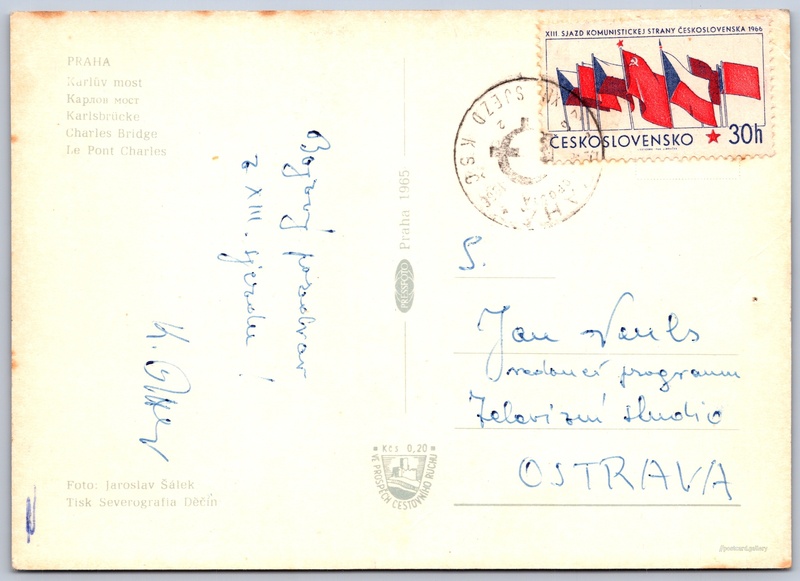 PRAHA
Karlův most
Карлов мост
Karlsbrücke
Charles Bridge
Le Pont Charles
XIII. SJAZD KOMUNISTICKEJ STRANY ČESKOSLOVENSKA 1966
ČESKOSLOVENSKO 30h
SJEZD KSČ
Bojový pozdrav
z XIII. sjezdu!
K.
PRESSFOTO Praha 1965
S.
Jan
vedoucí programu
Televizní studio
OSTRAVA
Kčs 0,20
VE PROSPĚCH CESTOVNÍHO RUCHU
Foto: Jaroslav Šálek
Tisk Severografia Děčín
postcard.gallery